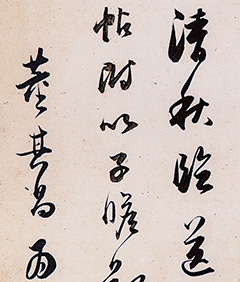 清秋臨送
帖附以子瞻
董其昌